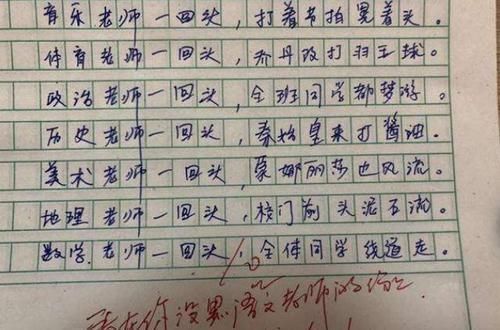 音乐老师一回头，打着节拍晃着头。
体育老师一回头，乔丹改打羽毛球。
政治老师一回头，全班同学都梦游。
历史老师一回头，秦始皇来打酱油。
美术老师一回头，蒙娜丽莎也风流。
地理老师一回头，校门前头泥石流。
数学老师一回头，全体同学绕道走。
看在你没黑语文老师的份上